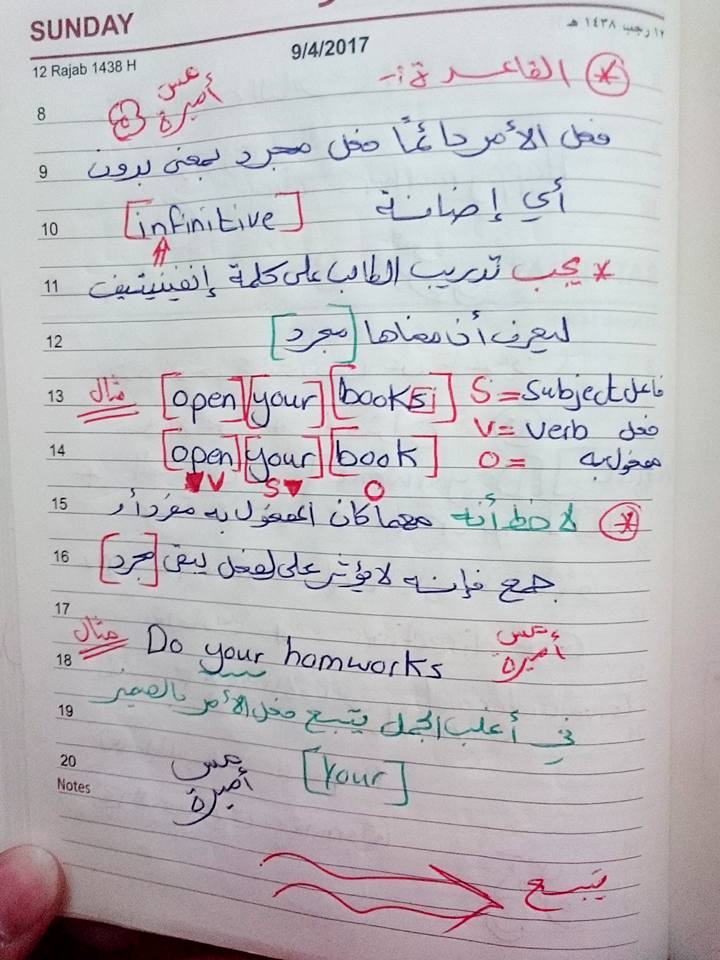 SUNDAY
١٢ رجب ١٤٣٨ هـ
12 Rajab 1438 H
9/4/2017
* القاعدة :-
مس أميرة
8
9 فعل الأمر دائمًا فعل مجرد بمعنى بدون
10 أي إضافة [infinitive]
11 * يجب تدريب الطالب على كلمة إنفينيتيف
12 ليعرف أن معناها [مجرد]
13 مثال [open] [your] [books] S = Subject فاعل
V = Verb فعل
14 [open] [your] [book] O = مفعول به
V S O
15 * لاحظ أنه مهما كان المفعول به مفرد أو
16 جمع فإنه لا يؤثر على الفعل يبقى [مجرد]
17
18 مثال Do your homworks مس أميرة
19 في أغلب الجمل يتبع فعل الأمر بالضمير
20 [your] مس أميرة
Notes
يتبع